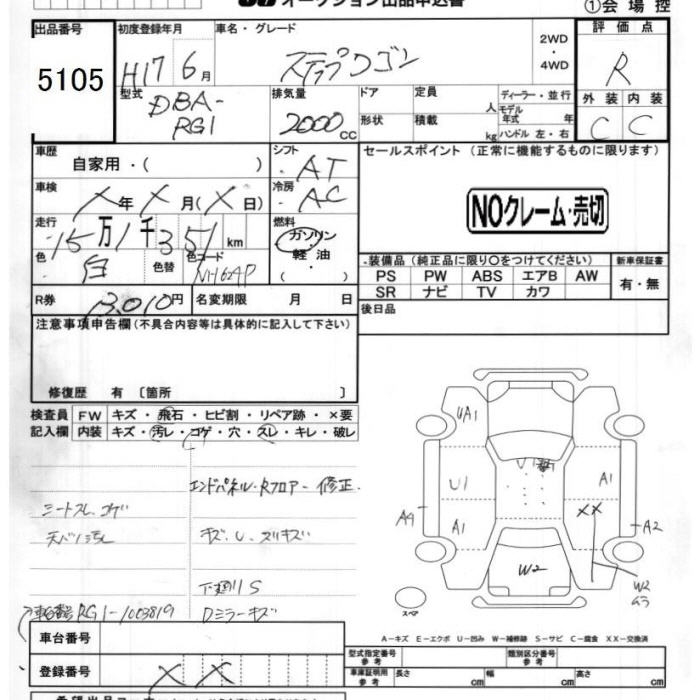 オークション出品申込書
①会場控
出品番号 5105
初度登録年月 H17 6月
車名・グレード ステップワゴン
2WD・4WD
評価点 R
外装 内装
C C
型式 DBA-RG1
排気量 2000cc
ドア 形状
定員 人
積載 kg
ディーラー・並行
モデル年式 年
ハンドル 左・右
車歴 自家用・( )
シフト AT
車検 X年X月(X日)
冷房 AC
走行 15万1千351km
燃料 ガソリン・軽油・( )
色 白 色替 色コード NH624P
R券 13,010円 名変期限 月 日
セールスポイント (正常に機能するものに限ります)
NOクレーム・売切
装備品(純正品に限り○をつけてください) 新車保証書
PS PW ABS エアB AW 有・無
SR ナビ TV カワ
後日品
注意事項申告欄(不具合内容等は具体的に記入して下さい)
修復歴 有 〔箇所 〕
検査員 FW キズ・飛石・ヒビ割・リペア跡・×要
記入欄 内装 キズ・汚レ・コゲ・穴・スレ・キレ・破レ
エンドパネル・Rフロアー修正
シートスレ、コゲ
天バリ汚れ
キズ、U、スリキズ
下廻りS
車台番号RG1-1003819 Dミラーキズ
車台番号
登録番号 XX
UA1
U1
U1
A1
A1
XX
A4
A2
W2
W2
ムラ
スペア
A-キズ E-エクボ U-凹み W-補修跡 S-サビ C-腐食 XX-交換済
型式指定番号 参考 類別区分番号 参考
車庫証明用 参考 長さ cm 幅 cm 高さ cm